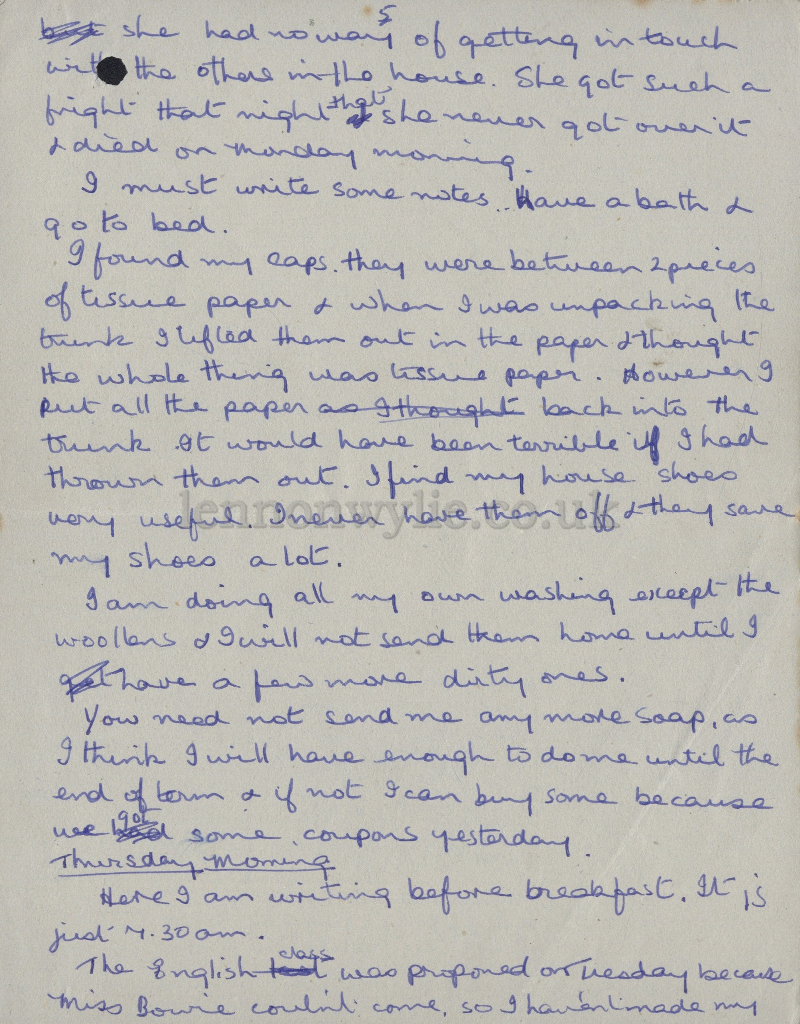 5
but she had no way of getting in touch
with the others in the house. She got such a
fright that night that she never got over it
& died on Monday morning.
I must write some notes. Have a bath &
go to bed.
I found my caps. they were between 2 pieces
of tissue paper & when I was unpacking the
trunk I lifted them out in the paper & thought
the whole thing was tissue paper. However I
put all the paper as I thought back into the
trunk. It would have been terrible if I had
thrown them out. I find my house shoes
very useful. I never have them off & they save
my shoes a lot.
I am doing all my own washing except the
woollens & I will not send them home until I
get have a few more dirty ones.
You need not send me any more soap, as
I think I will have enough to do me until the
end of term & if not I can buy some because
we got had some coupons yesterday.
Thursday Morning
Here I am writing before breakfast. It is
just 7.30am.
The English class was proponed on Tuesday because
Miss Bowie couln't come, so I haven't made my
lennonwylie.co.uk